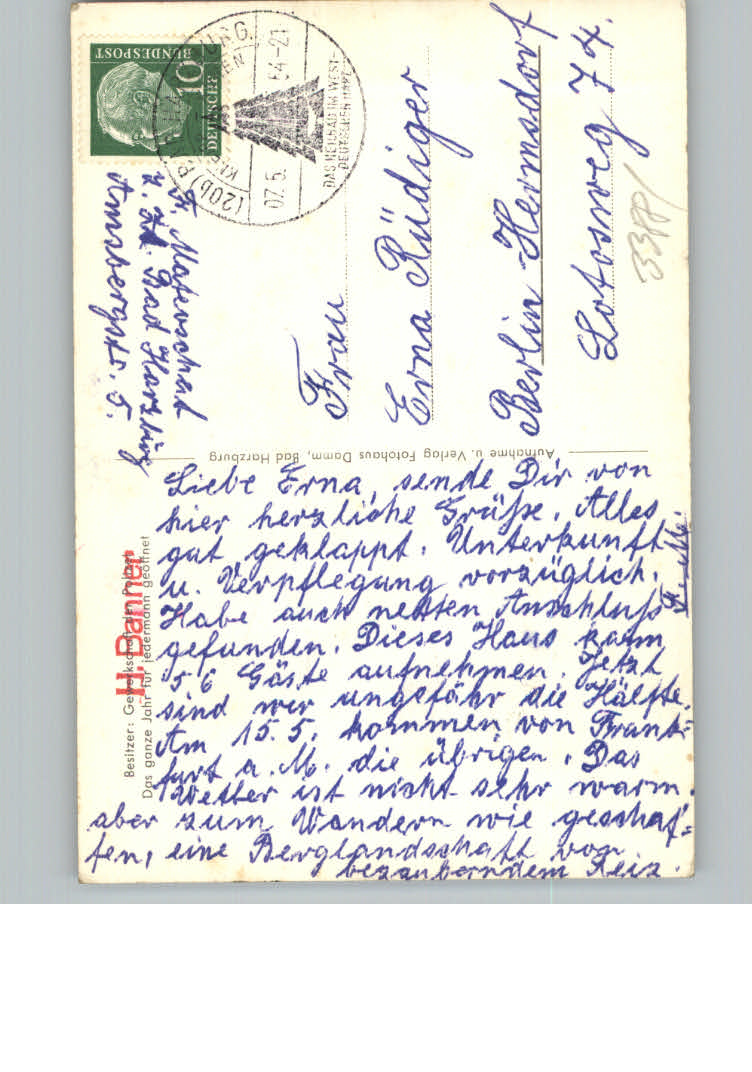 BUNDESPOST
10
DEUTSCHE
(20b)
07.5.54-21
DAS HEILBAD IM WEST-
DEUTSCHEN HARZ
z. Zt. Bad Harzburg
Amsbergstr. 5.
Frau
Erna Rüdiger
Berlin-Hermsdorf
Lotosweg 74.
Aufnahme u. Verlag Fotohaus Damm, Bad Harzburg
Besitzer: Gewerkschaft der Polizei
Das ganze Jahr für jedermann geöffnet
H. Danner
Liebe Erna, sende Dir von
hier herzliche Grüße. Alles
gut geklappt. Unterkunft
u. Verpflegung vorzüglich.
Habe auch netten Anschluß
gefunden. Dieses Haus kann
56 Gäste aufnehmen. Jetzt
sind wir ungefähr die Hälfte.
Am 15.5. kommen von Frank=
furt a.M. die übrigen. Das
Wetter ist nicht sehr warm.
aber zum Wandern wie geschaf=
fen, eine Berglandschaft von
bezauberndem Reiz.